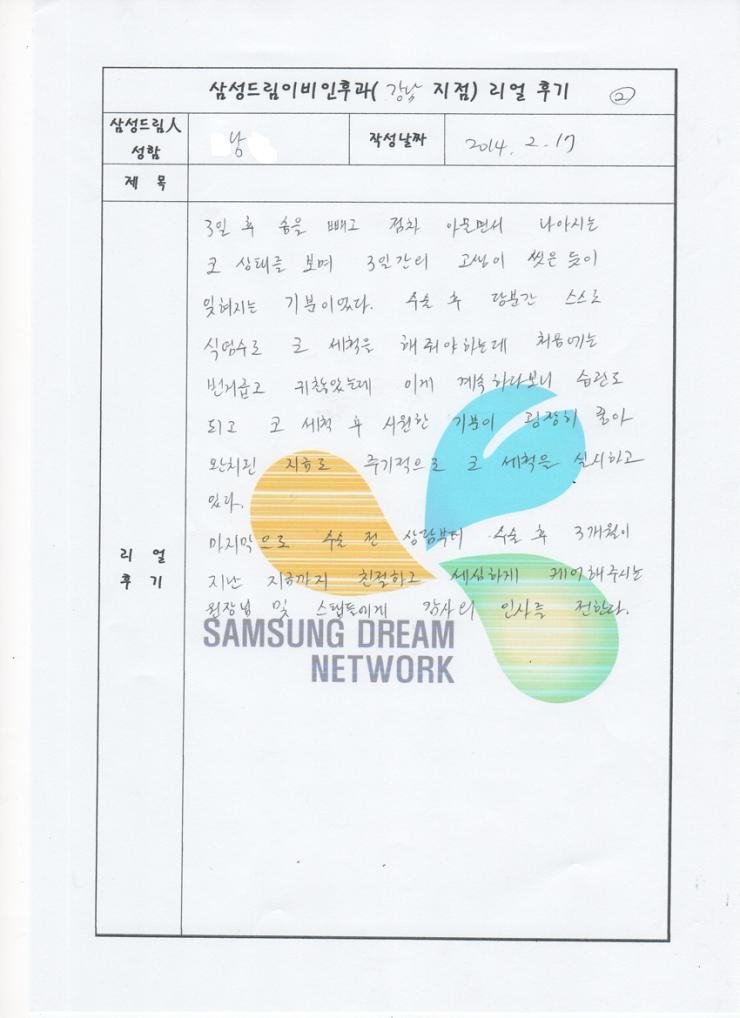 삼성드림이비인후과( 강남 지점) 리얼 후기 ②
삼성드림人 성함
남
작성날짜
2014. 2. 17
제 목
리 얼 후 기
3일 후 솜을 빼고 점차 아물면서 나아지는
코 상태를 보며 3일간의 고생이 씻은 듯이
잊혀지는 기분이었다. 수술 후 당분간 스스로
식염수로 코 세척을 해줘야하는데 처음에는
번거롭고 귀찮았는데 이게 계속하다보니 습관도
되고 코 세척 후 시원한 기분이 굉장히 좋아
완치된 지금도 주기적으로 코 세척을 실시하고
있다.
마지막으로 수술 전 상담부터 수술 후 3개월이
지난 지금까지 친절하고 세심하게 케어해주시는
원장님 및 스탭들에게 감사의 인사를 전한다.
SAMSUNG DREAM
NETWORK